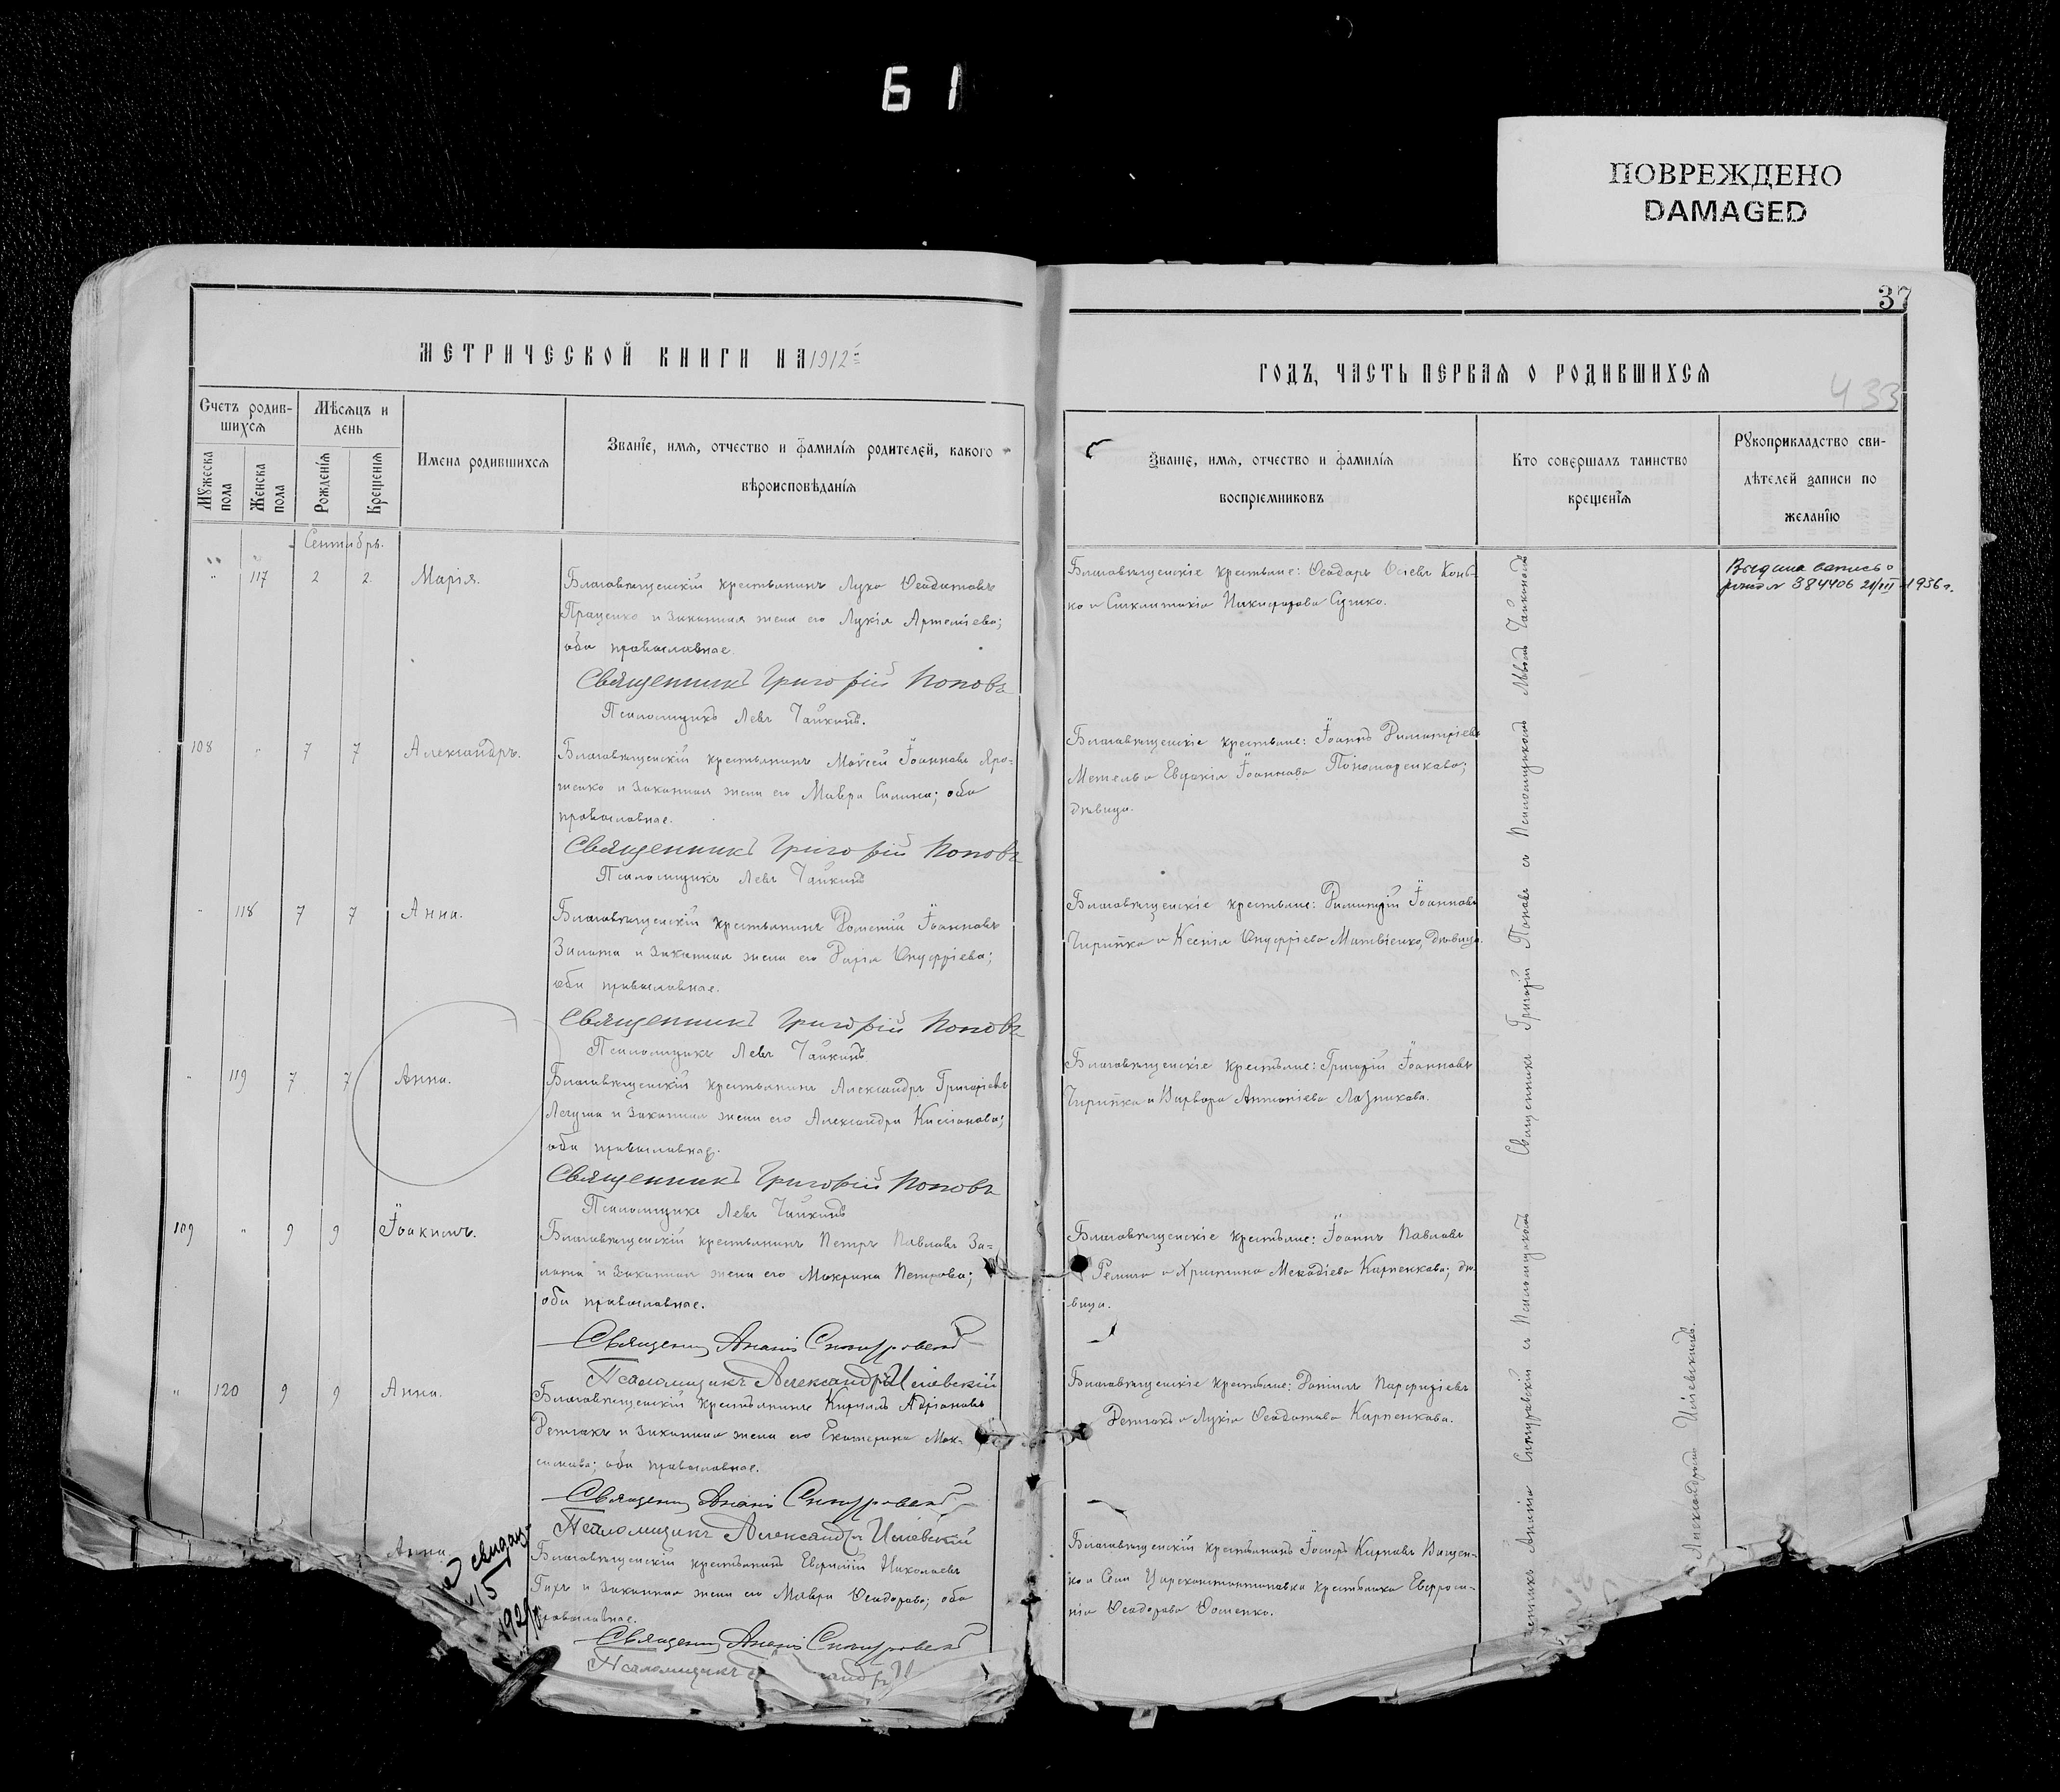 61
ПОВРЕЖДЕНО
DAMAGED
37
МЕТРИЧЕСКОЙ КНИГИ НА 1912й
ГОДЪ, ЧАСТЬ ПЕРВАЯ О РОДИВШИХСЯ
433
Счетъ родив-
шихся
Мужеска
пола
Женска
пола
Мѣсяцъ и
день
Рожденія
Крещенія
Имена родившихся
Званіе, имя, отчество и фамилія родителей, какого
вѣроисповѣданія
Званіе, имя, отчество и фамилія
воспріемниковъ
Кто совершалъ таинство
крещенія
Рукоприкладство сви-
дѣтелей записи по
желанію
Сентябрь.
" 117 2 2 Марія.
Благовѣщенскій крестьянинъ Лука Ѳеодотовъ
Праценко и законная жена его Лукія Артеміева;
оба православные.
Священникъ Григорій Поповъ
Псаломщикъ Левъ Чайкинъ.
Благовѣщенскіе крестьяне: Ѳеодоръ Конь-
ко и Синклитикія Никифорова Сушко.
384406 21/III 1936 г.
108 " 7 7 Александръ.
Благовѣщенскій крестьянинъ Моѵсей Іоанновъ Яро-
шенко и законная жена его Мавра Силина; оба
православные.
Священникъ Григорій Поповъ
Псаломщикъ Левъ Чайкинъ
Благовѣщенскіе крестьяне: Іоаннъ Димитріевъ
Метель и Евдокія Іоаннова Пономаренкова;
дѣвица.
" 118 7 7 Анна.
Благовѣщенскій крестьянинъ Дометій Іоанновъ
Залата и законная жена его Дарія Онуфріева;
оба православные.
Священникъ Григорій Поповъ
Псаломщикъ Левъ Чайкинъ
Благовѣщенскіе крестьяне: Димитрій Іоанновъ
Чирипка и Ксенія Онуфріева Матвіенко, дѣвица.
" 119 7 7 Анна.
Благовѣщенскій крестьянинъ Александръ Григоріевъ
Легуша и законная жена его Александра Кассіанова;
оба православные.
Священникъ Григорій Поповъ
Псаломщикъ Левъ Чайкинъ
Благовѣщенскіе крестьяне: Григорій Іоанновъ
Чирипка и Варвара Антоніева Лазникова.
109 " 9 9 Іоакимъ.
Благовѣщенскій крестьянинъ Петръ Павловъ За-
лата и законная жена его Макрина Петрова;
оба православные.
Священникъ Ананія
Псаломщикъ Александръ
Благовѣщенскіе крестьяне: Іоаннъ Павловъ
и Христина Карпенкова; дѣ-
вица.
" 120 9 9 Анна.
Благовѣщенскій крестьянинъ Кириллъ Адріановъ
Детлакъ и законная жена его Екатерина Мак-
симова; оба православные.
Священникъ Ананія
Псаломщикъ Александръ
Благовѣщенскіе крестьяне: Даніилъ Порфиріевъ
Детлакъ и Лукія Ѳеодотова Карпенкова.
Анна.
Благовѣщенскій крестьянинъ Евфимій Николаевъ
и законная жена его Мавра Ѳеодорова; оба
православные.
Священникъ Ананія
Псаломщикъ
Благовѣщенскій крестьянинъ Іосифъ Карповъ Ващен-
ко и села Цареконстантиновки крестьянка Евфроси-
нія Ѳеодорова
Священникъ Григорій Поповъ съ псаломщикомъ Львомъ Чайкинымъ
Ананія съ псаломщикомъ
Александромъ